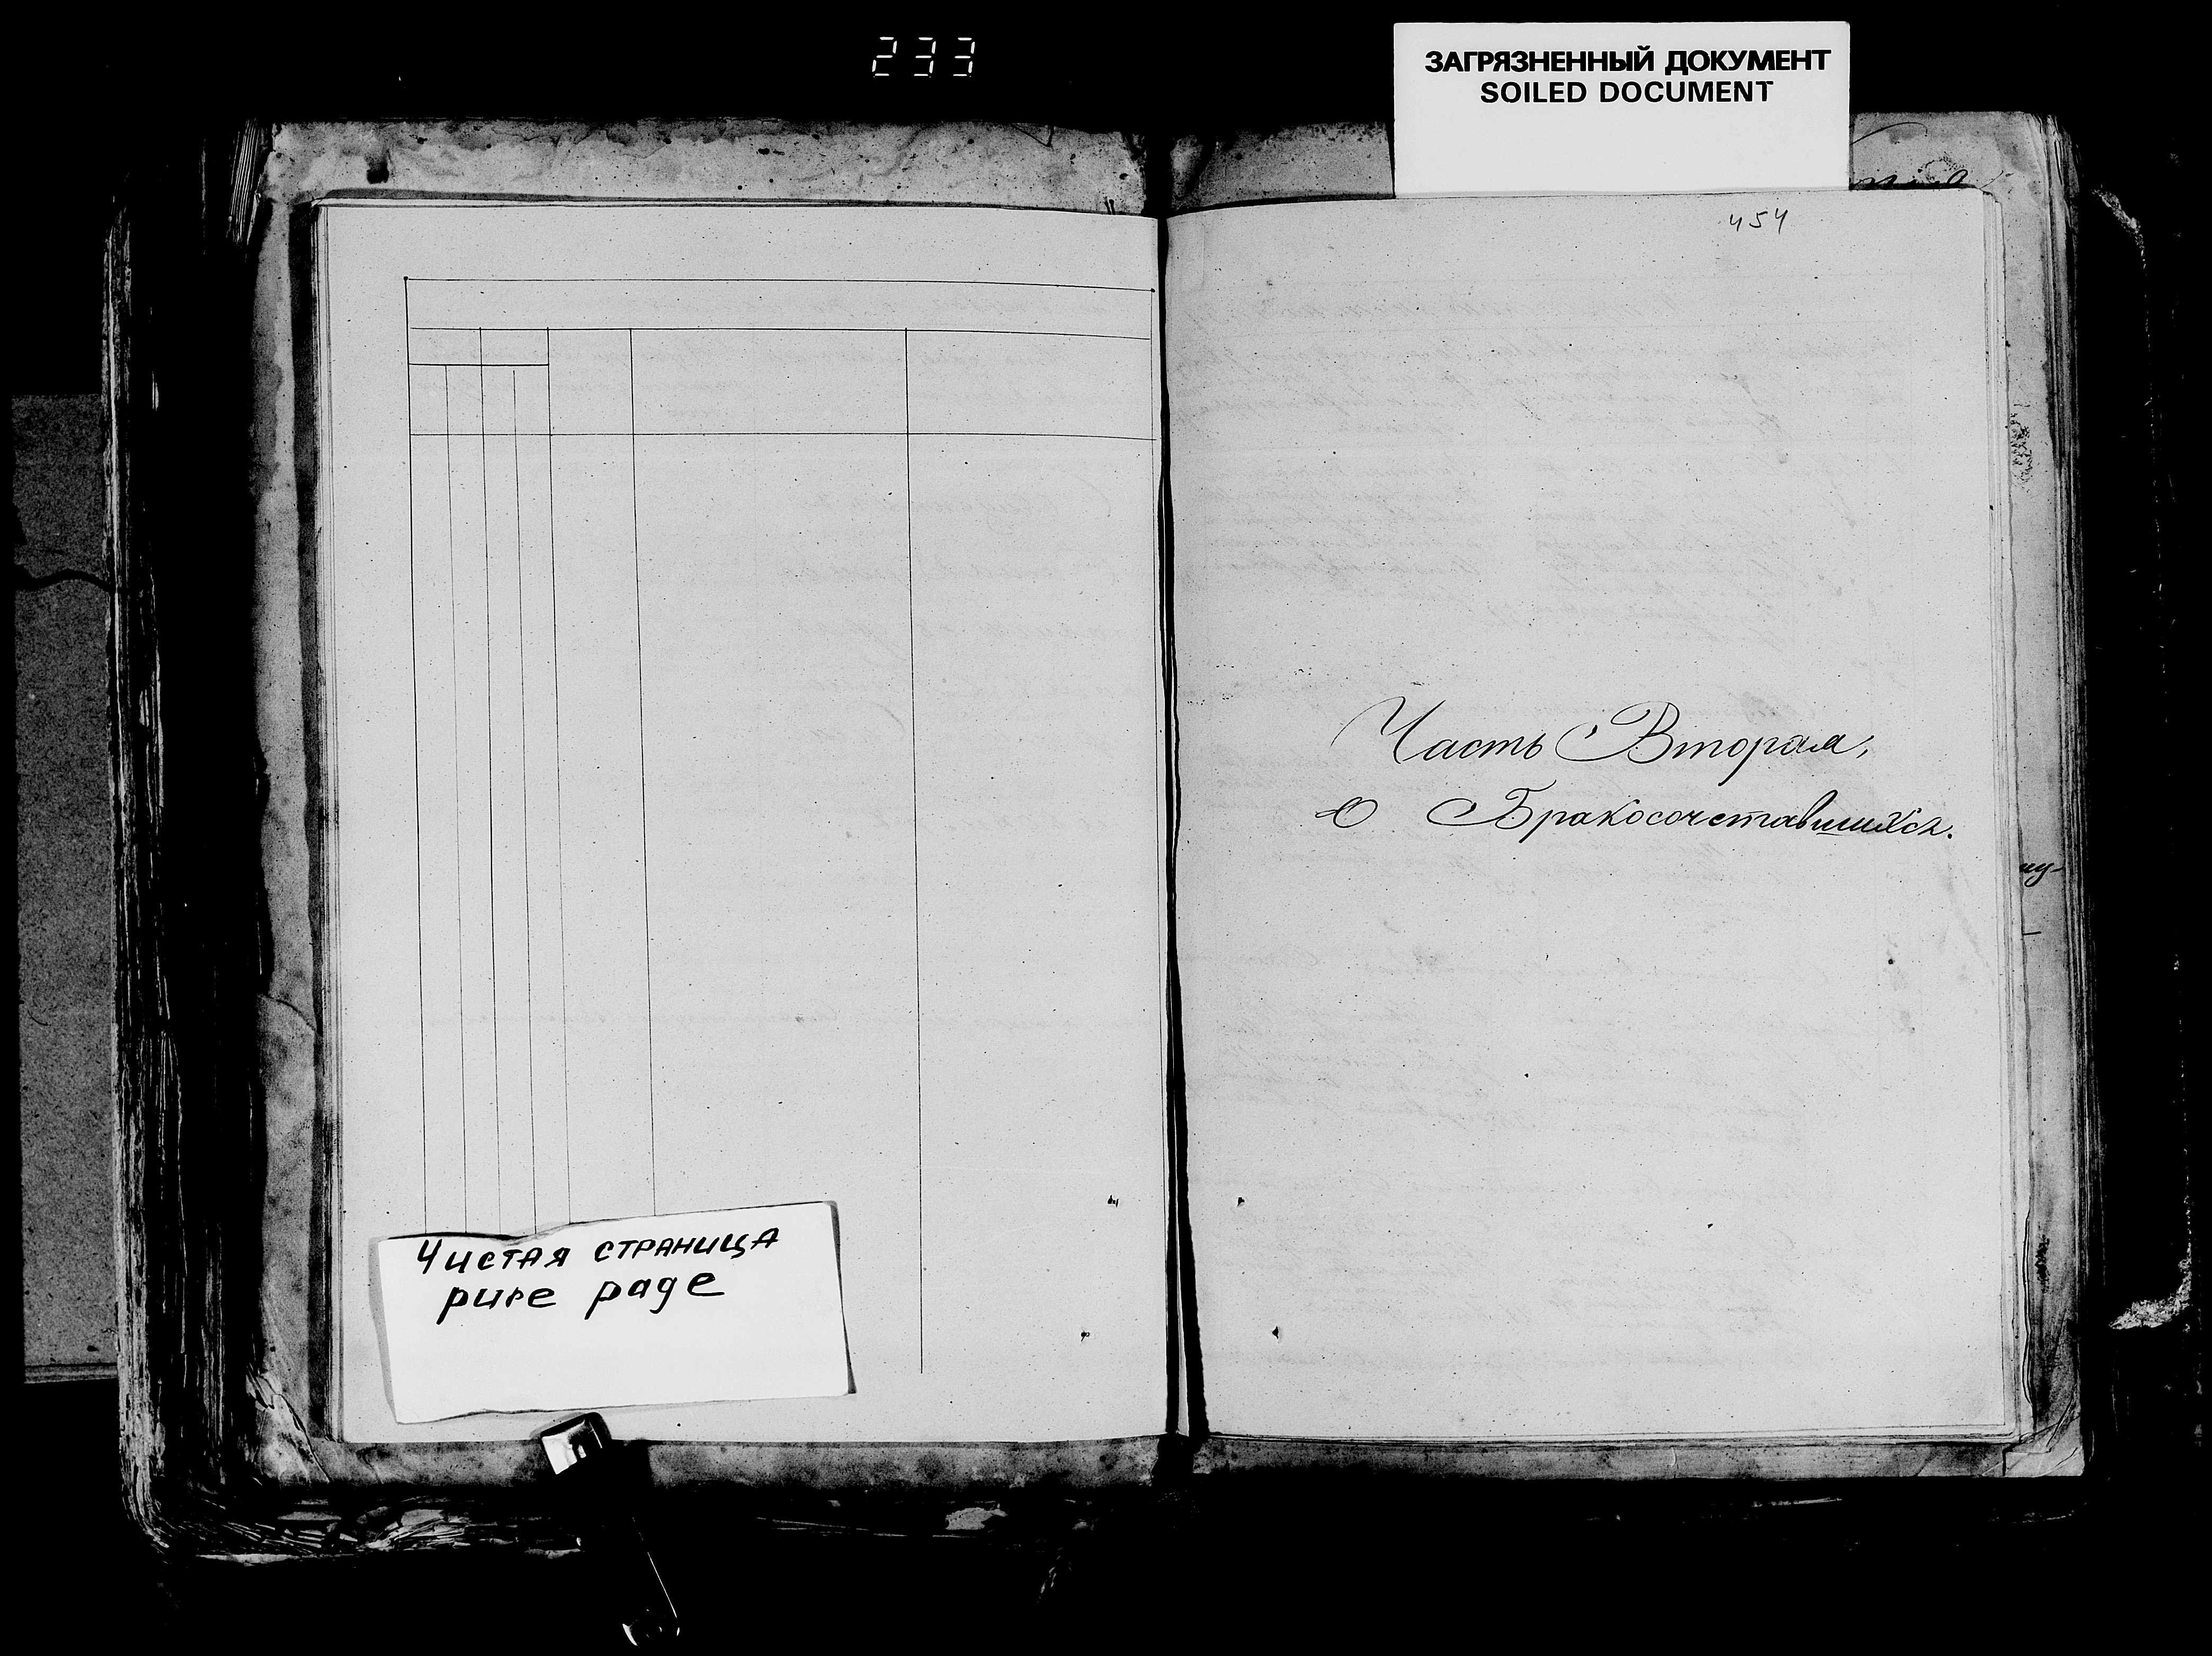 233
ЗАГРЯЗНЕННЫЙ ДОКУМЕНТ
SOILED DOCUMENT
454
Часть Вторая,
О Бракосочетавшихся.
Чистая страница
pure page